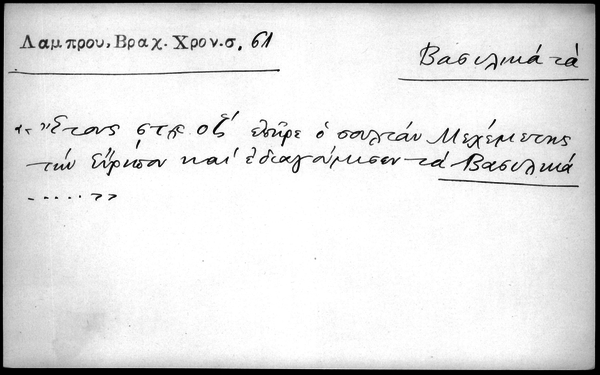 Λαμπρου, Βραχ. Χρον. σ. 61
Βασιλικά τά
« Ἔτους στλοζ´ ἐπῆρε ὁ σουλτάν Μεχέμετης
τήν Εὔριπον καί ἐδιαγούμισεν τά Βασιλικά
..... »